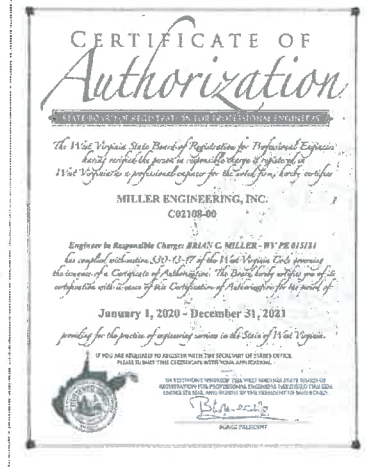 CERTIFICATE OF
Authorization
STATE BOARD OF REGISTRATION FOR PROFESSIONAL ENGINEERS
The West Virginia State Board of Registration for Professional Engineers
having verified the person in responsible charge is registered in
West Virginia as a professional engineer for the noted firm, hereby certifies
MILLER ENGINEERING, INC.
C02108-00
Engineer in Responsible Charge: BRIAN C. MILLER - WV PE 015124
has complied with section 30-13-17 of the West Virginia Code governing
the issuance of a Certificate of Authorization. The Board hereby notifies you of its
certification with issuance of this Certification of Authorization for the period of:
January 1, 2020 - December 31, 2021
providing for the practice of engineering services in the State of West Virginia.
IF YOU ARE REQUIRED TO REGISTER WITH THE SECRETARY OF STATE'S OFFICE,
PLEASE SUBMIT THIS CERTIFICATE WITH YOUR APPLICATION.
IN TESTIMONY WHEREOF THE WEST VIRGINIA STATE BOARD OF
REGISTRATION FOR PROFESSIONAL ENGINEERS
BOARD PRESIDENT